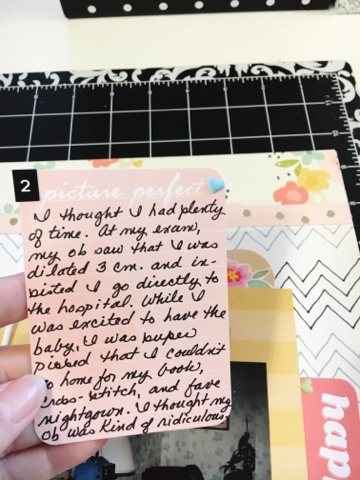 2
picture perfect
I thought I had plenty
of time. At my exam,
my OB saw that I was
dilated 3 cm. and in-
sisted I go directly to
the hospital. While I
was excited to have the
baby, I was super
pissed that I couldn't
go home for my book,
cross-stitch, and fave
nightgown. I thought my
OB was kind of ridiculous